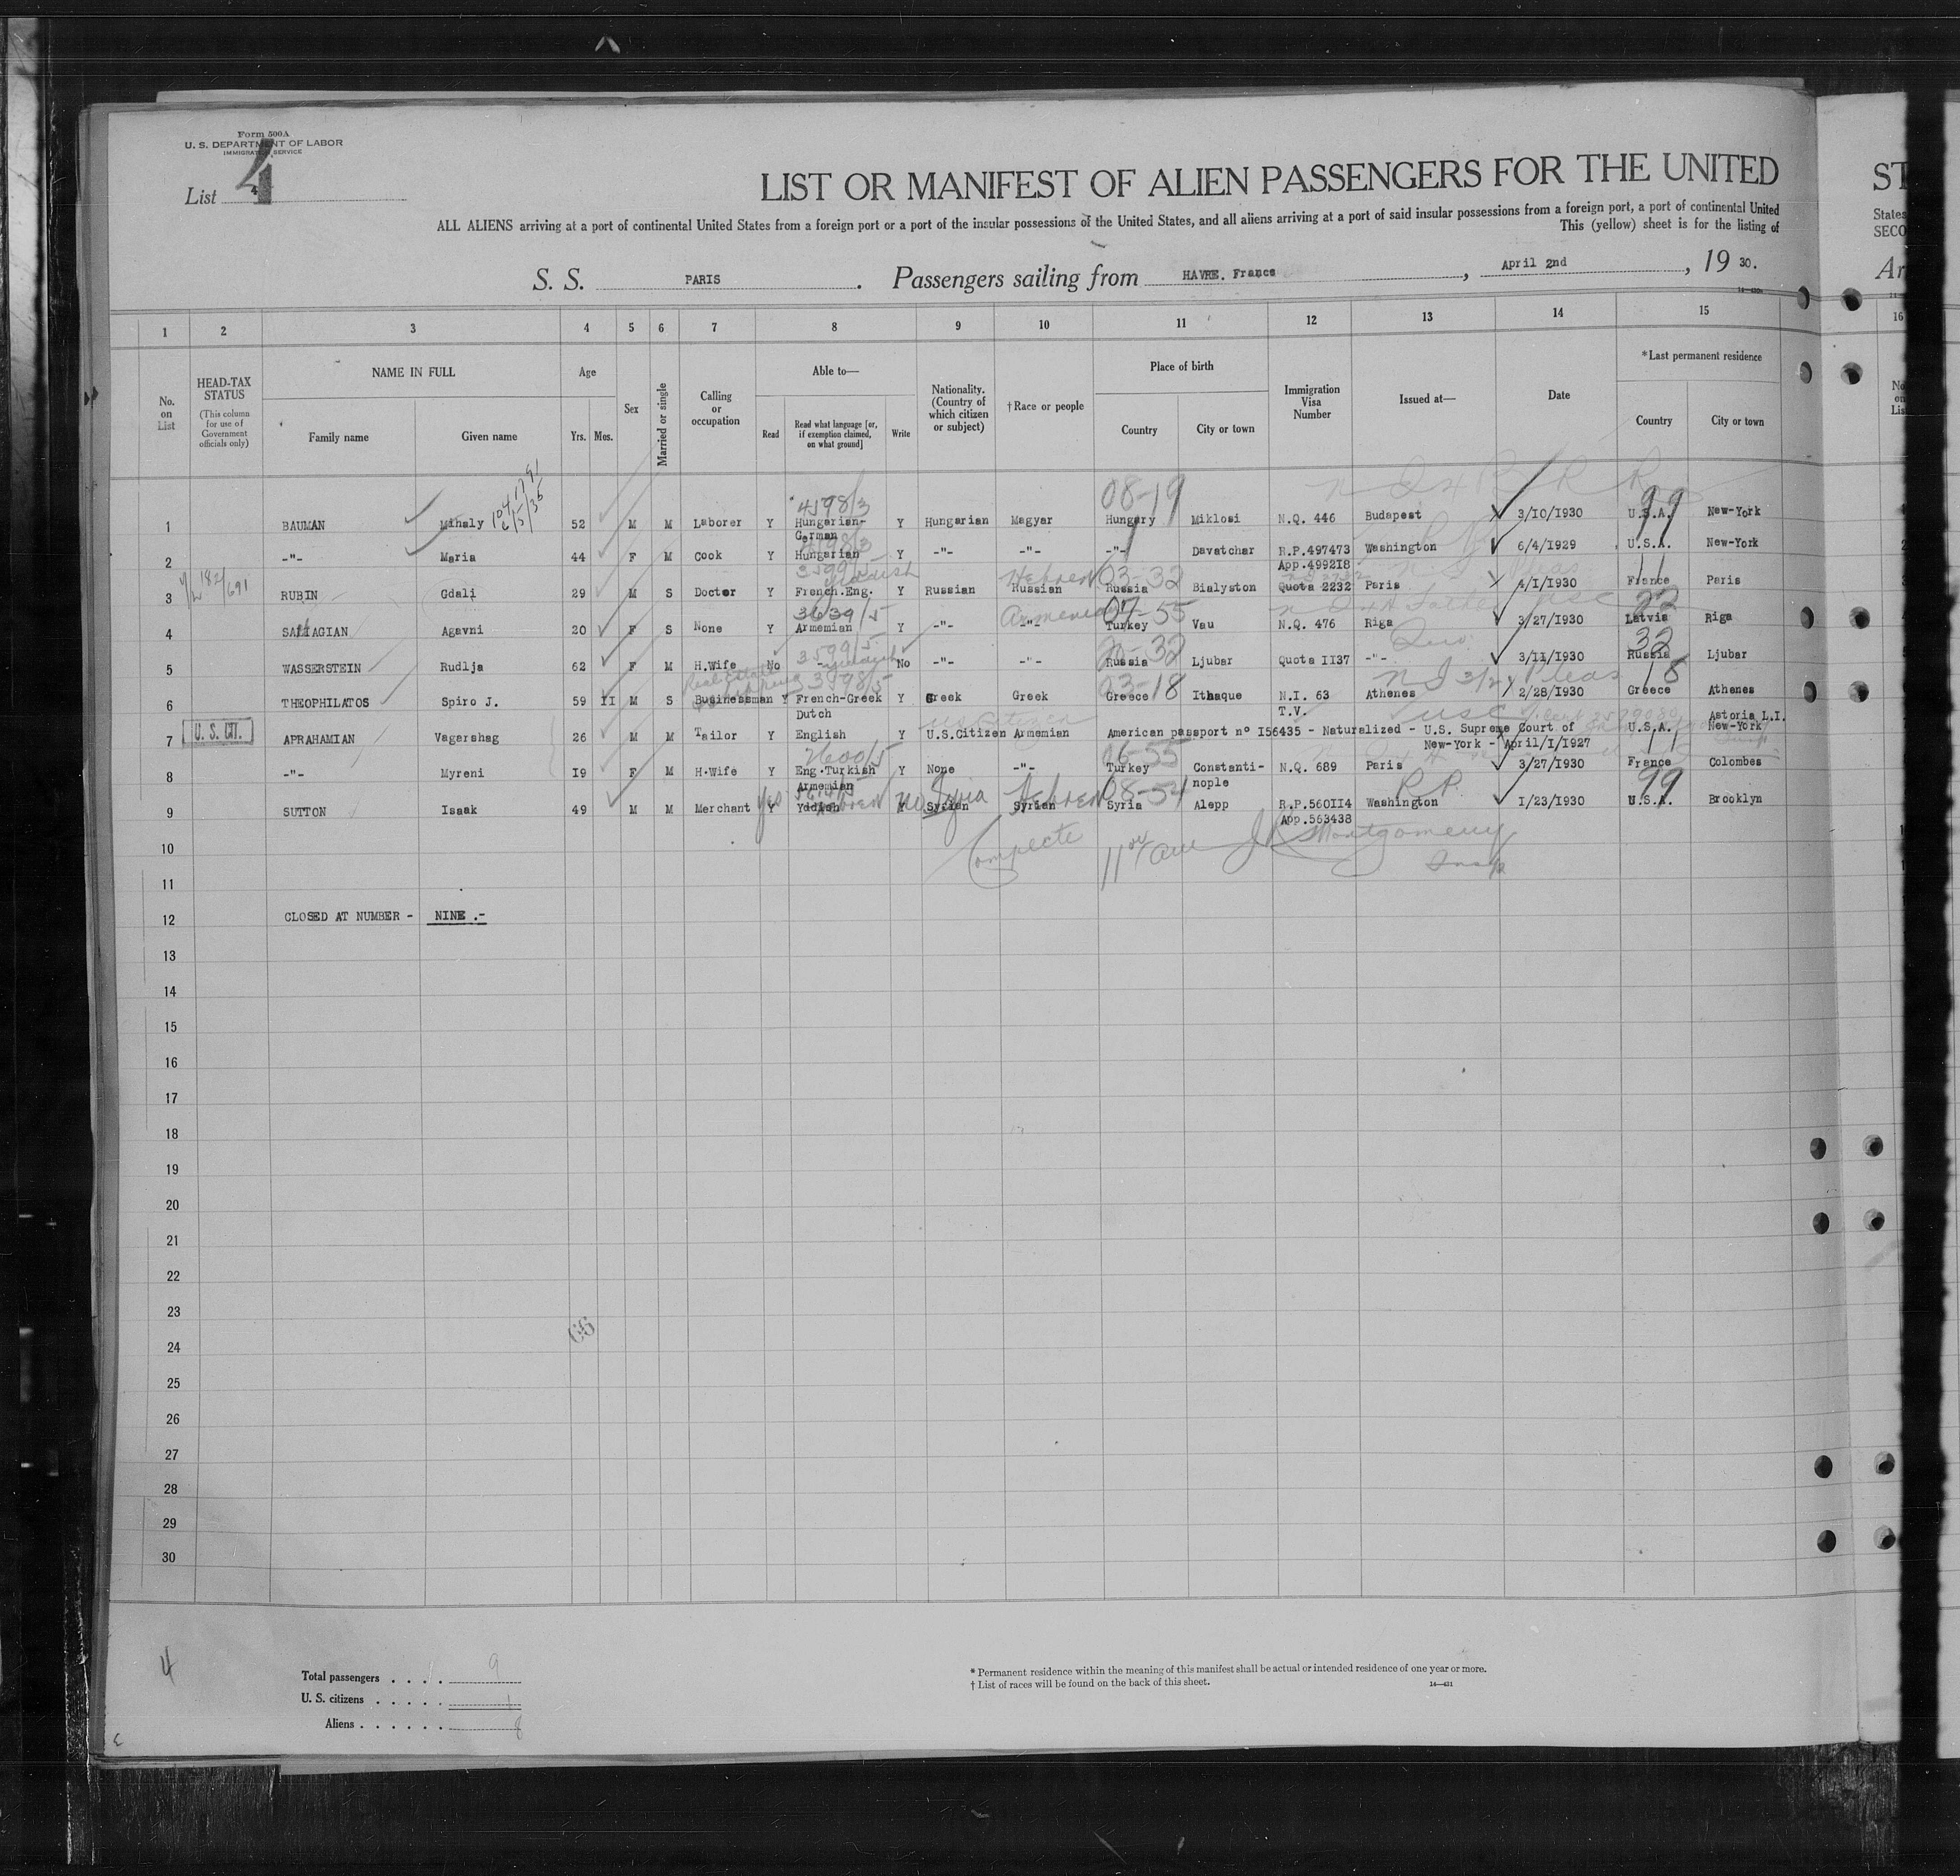 Form 500A
U. S. DEPARTMENT OF LABOR
IMMIGRATION SERVICE
List 4
4
LIST OR MANIFEST OF ALIEN PASSENGERS FOR THE UNITED
ST
ALL ALIENS arriving at a port of continental United States from a foreign port or a port of the insular possessions of the United States, and all aliens arriving at a port of said insular possessions from a foreign port, a port of continental United
States
This (yellow) sheet is for the listing of
SECO
S. S. PARIS. Passengers sailing from HAVRE. France, April 2nd, 19 30.
Ar
1 2 3 4 5 6 7 8 9 10 11 12 13 14 15 16
No. on List
HEAD-TAX STATUS
(This column for use of Government officials only)
NAME IN FULL
Family name Given name
Age
Yrs. Mos.
Sex
Married or single
Calling or occupation
Able to—
Read Read what language [or, if exemption claimed, on what ground] Write
Nationality. (Country of which citizen or subject)
† Race or people
Place of birth
Country City or town
Immigration Visa Number
Issued at—
Date
* Last permanent residence
Country City or town
08-19 99
1 BAUMAN Mihaly 52 M M Laborer Y Hungarian- German Y Hungarian Magyar Hungary Miklosi N.Q. 446 Budapest 3/10/1930 U.S.A. New-York
2 -"- Maria 44 F M Cook Y Hungarian Y -"- -"- -"- Davatchar R.P.497473 App.499218 Washington 6/4/1929 U.S.A. New-York
Yiddish Hebrew 03-32
3 RUBIN Gdali 29 M S Doctor Y French.Eng. Y Russian Russian Russia Bialyston Quota 2232 Paris 4/1/1930 France Paris
3639/5 07-55 22
4 SAMAGIAN Agavni 20 F S None Y Armemian Y -"- -"- Turkey Vau N.Q. 476 Riga 3/27/1930 Latvia Riga
3599/5 32
5 WASSERSTEIN Rudlja 62 F M H.Wife No - Yiddish No -"- -"- Russia Ljubar Quota II37 -"- 3/11/1930 Russia Ljubar
Real Estate 3598/5 03-18 18
6 THEOPHILATOS Spiro J. 59 II M S Businessman Y French-Greek Dutch Y Greek Greek Greece Ithaque N.I. 63 T.V. Athenes 2/28/1930 Greece Athenes
U. S. CIT.
US Citizen USC
7 APRAHAMIAN Vagershag 26 M M Tailor Y English Y U.S.Citizen Armemian American passport n° I56435 - Naturalized - U.S. Supreme Court of New-York - April/I/1927 U.S.A. Astoria L.I. New-York
2600/5 06-55 11
8 -"- Myreni I9 F M H.Wife Y Eng.Turkish Armemian Y None -"- Turkey Constanti- nople N.Q. 689 Paris 3/27/1930 France Colombes
yes no Syria Hebrew 08-54 R.P. 99
9 SUTTON Isaak 49 M M Merchant Y Yddish Y Syrian Syrian Syria Alepp R.P.560II4 App.563438 Washington I/23/1930 U.S.A. Brooklyn
10
Montgomery
Insp
11
12 CLOSED AT NUMBER - NINE .-
13
14
15
16
17
18
19
20
21
22
23
66
24
25
26
27
28
29
30
4
Total passengers . . . . 9
U. S. citizens . . . . . 1
Aliens . . . . . . 8
* Permanent residence within the meaning of this manifest shall be actual or intended residence of one year or more.
† List of races will be found on the back of this sheet.
14—431